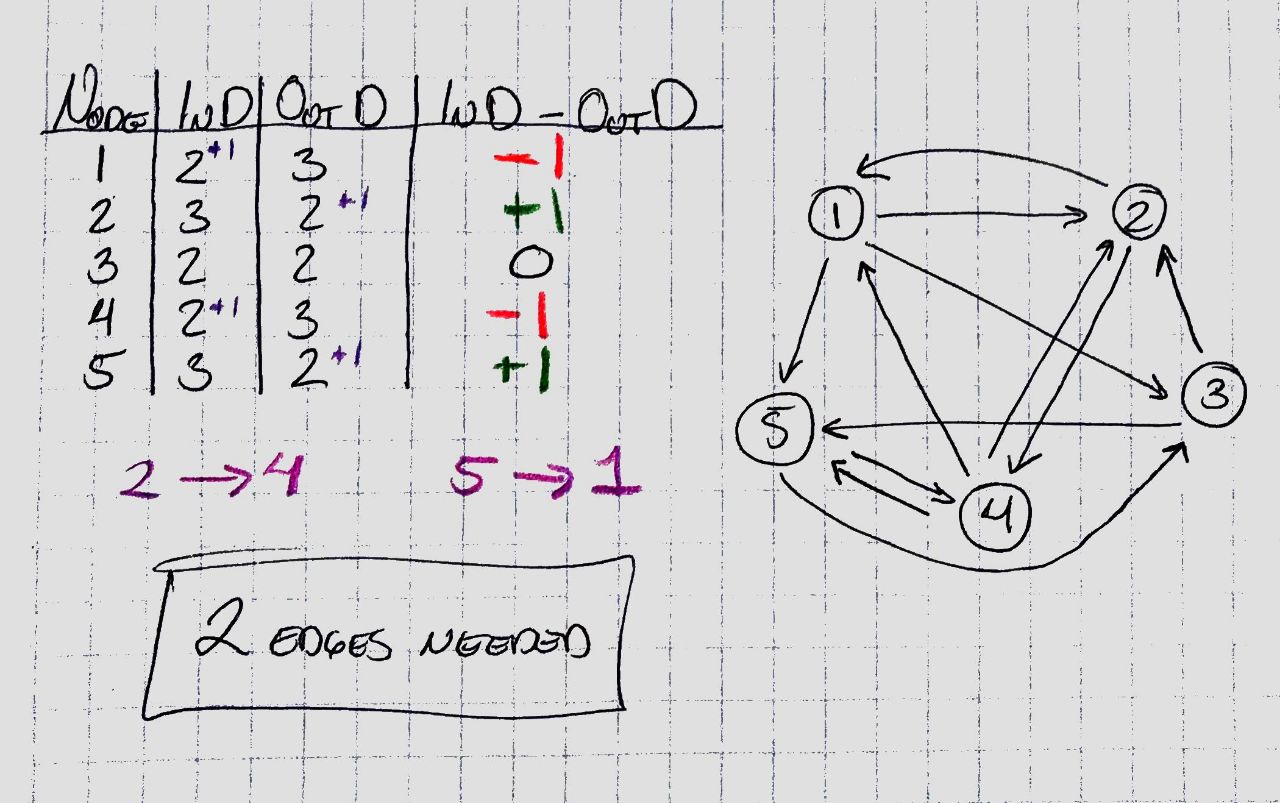 NODE IND OUTD IND - OUTD
1 2+1 3 -1
2 3 2+1 +1
3 2 2 0
4 2+1 3 -1
5 3 2+1 +1
2 → 4 5 → 1
2 EDGES NEEDED
1 2
3
5
4